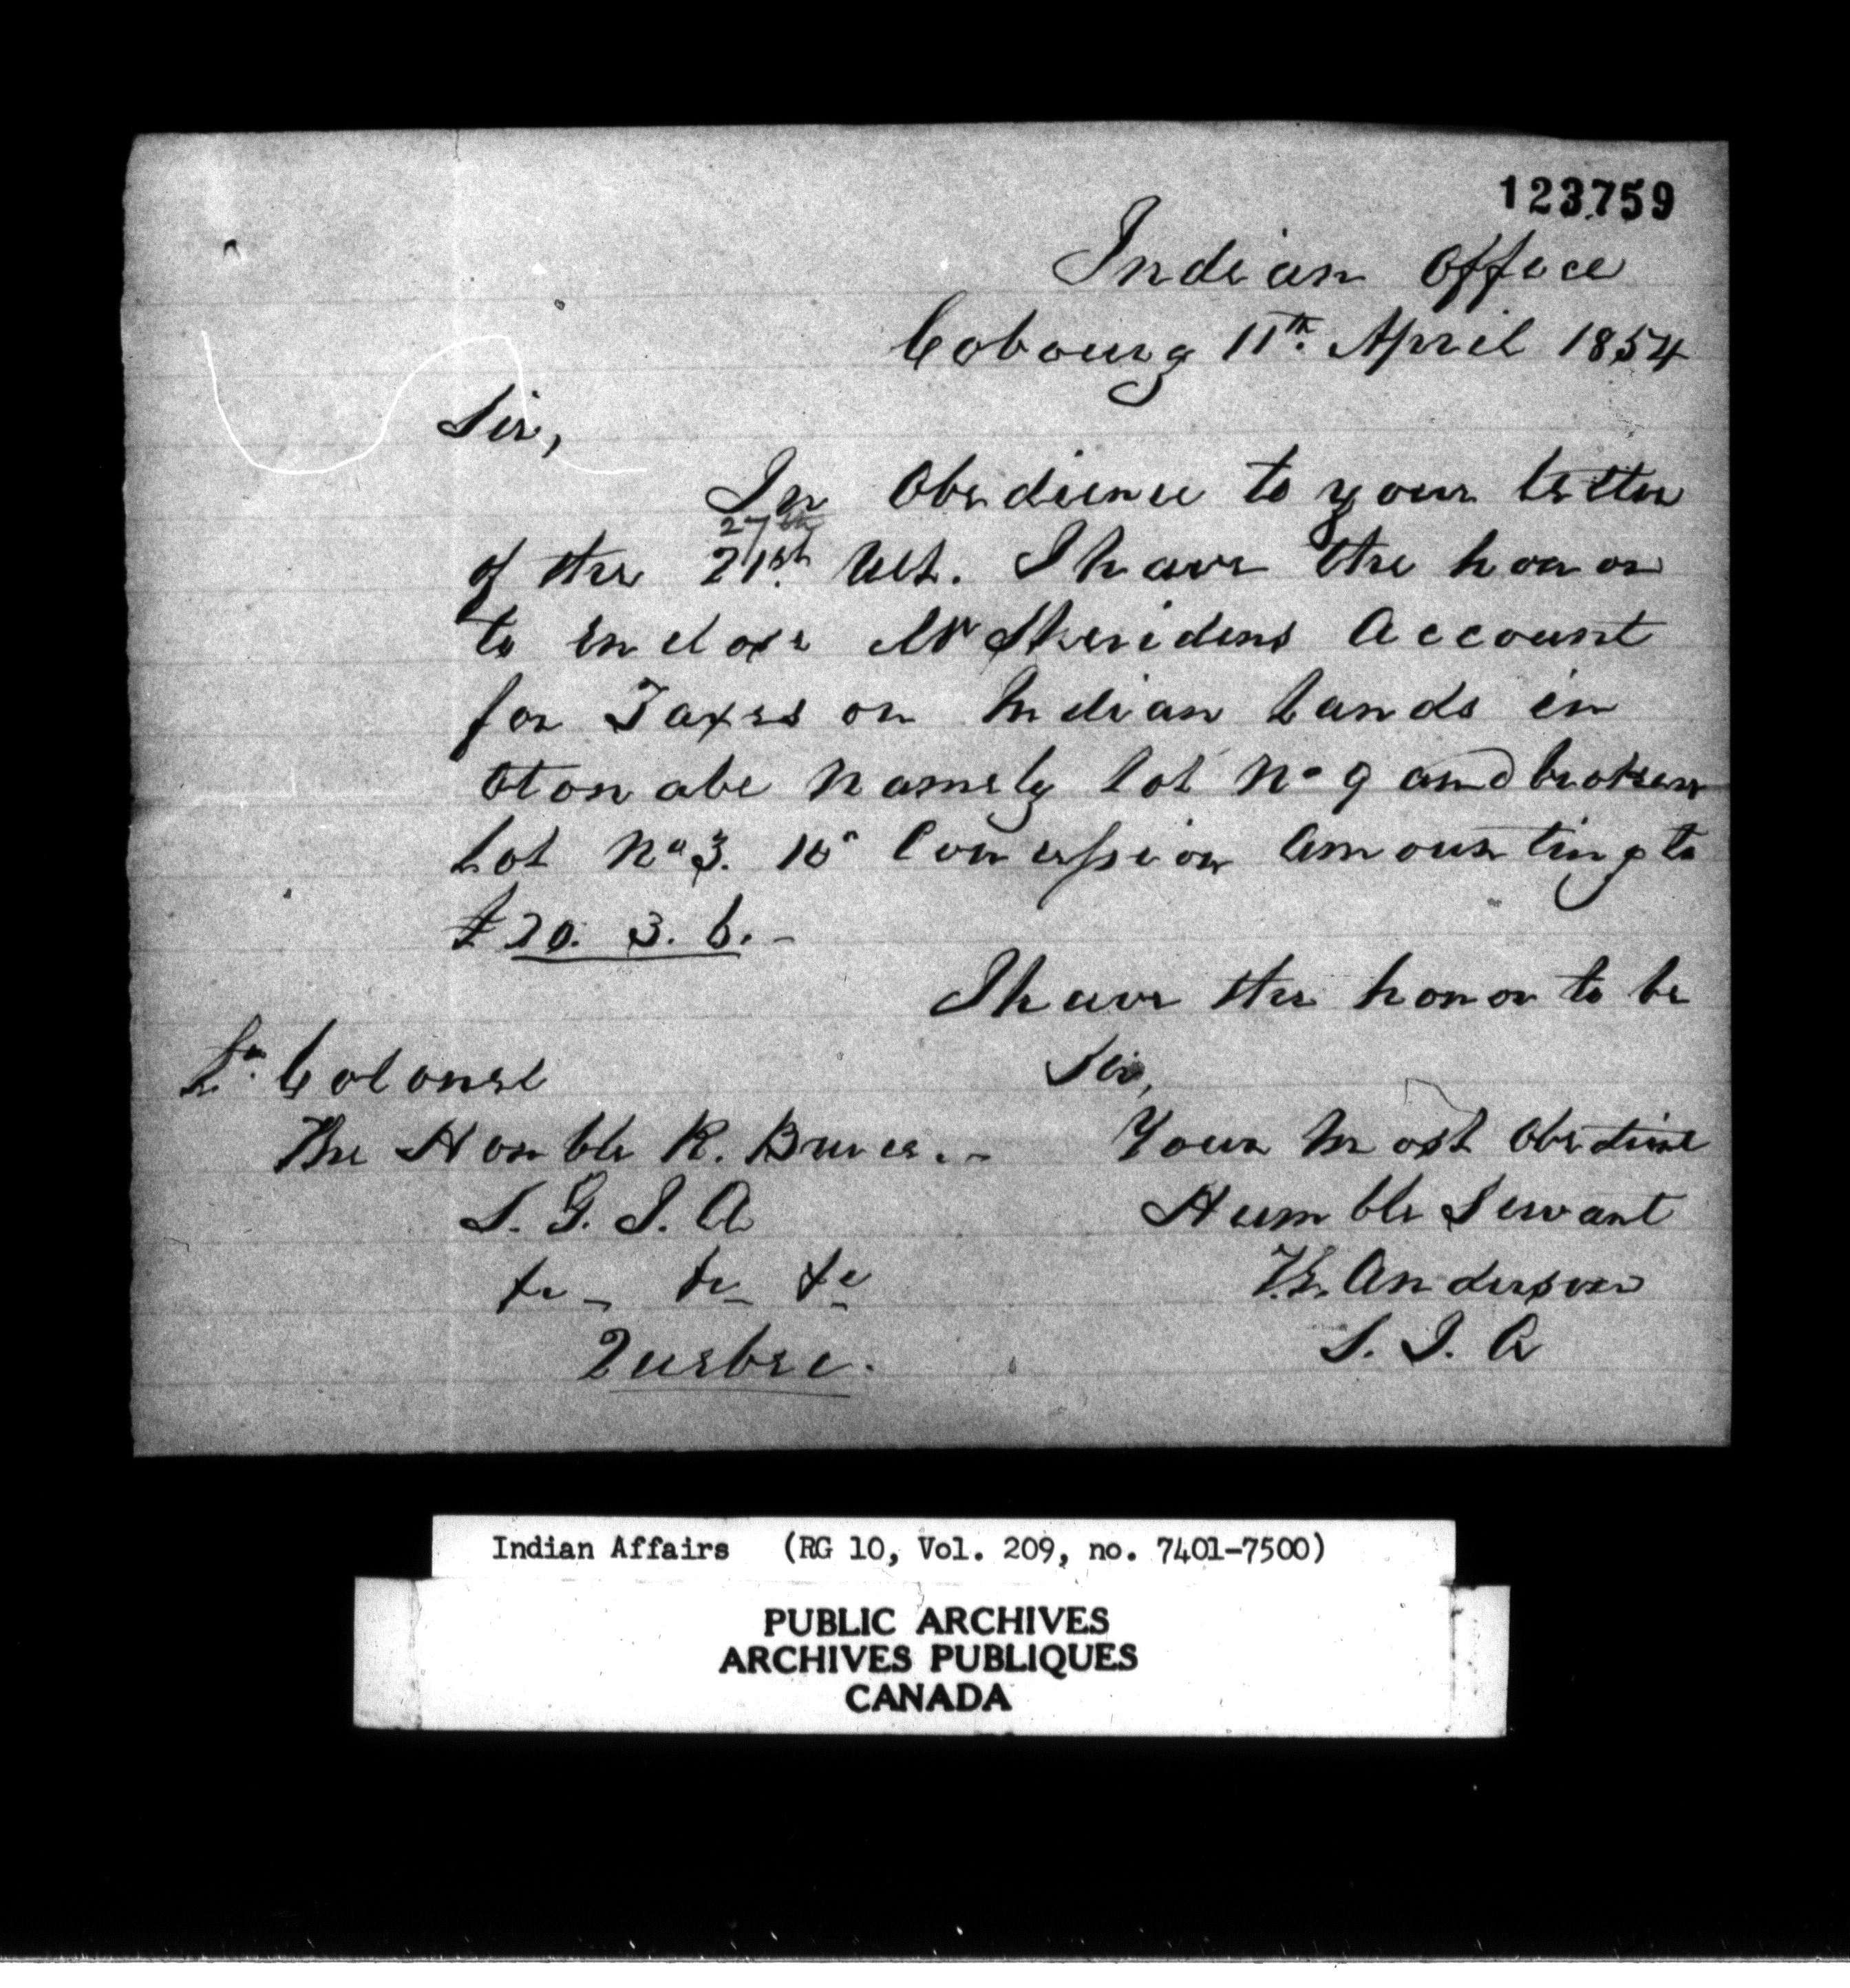 123759
Indian Office
Cobourg 11th. April 1854
Sir,
In Obedience to your letter
27th
of the 21st. Ult. I have the honor
to enclose Mr Sheridens Account
for Taxes on Indian Lands in
Otonabe Namely Lot No 9 and broken
Lot No 3. 10" Concession Amounting to
£20. 3. 6. -
I have the honor to be
Lt. Colonel
Sir,
The Honble R. Bruce. -
Your Most Obedient
S. G. I. A
Humble Servant
&c - &c &c
T. G. Anderson
Quebec.
S. I. A
Indian Affairs (RG 10, Vol. 209, no. 7401-7500)
PUBLIC ARCHIVES
ARCHIVES PUBLIQUES
CANADA